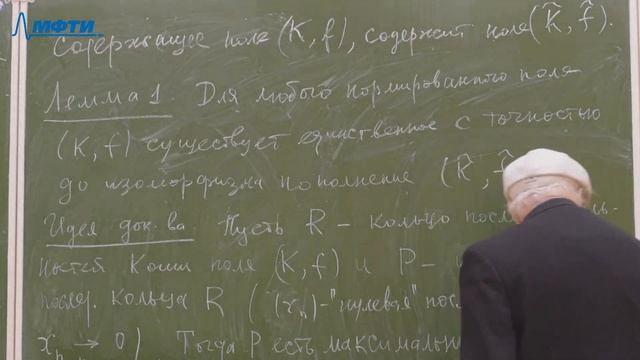 МФТИ
содержащее поле (K, f), содержит поле (K̂, f̂).
Лемма 1. Для любого нормированного поля
(K, f) существует единственное с точностью
до изоморфизма пополнение (K̂, f̂
Идея док-ва Пусть R – кольцо
ностей Коши поля (K, f) и P –
послед. кольца R ( "нулевая"
→ 0) Тогда P есть